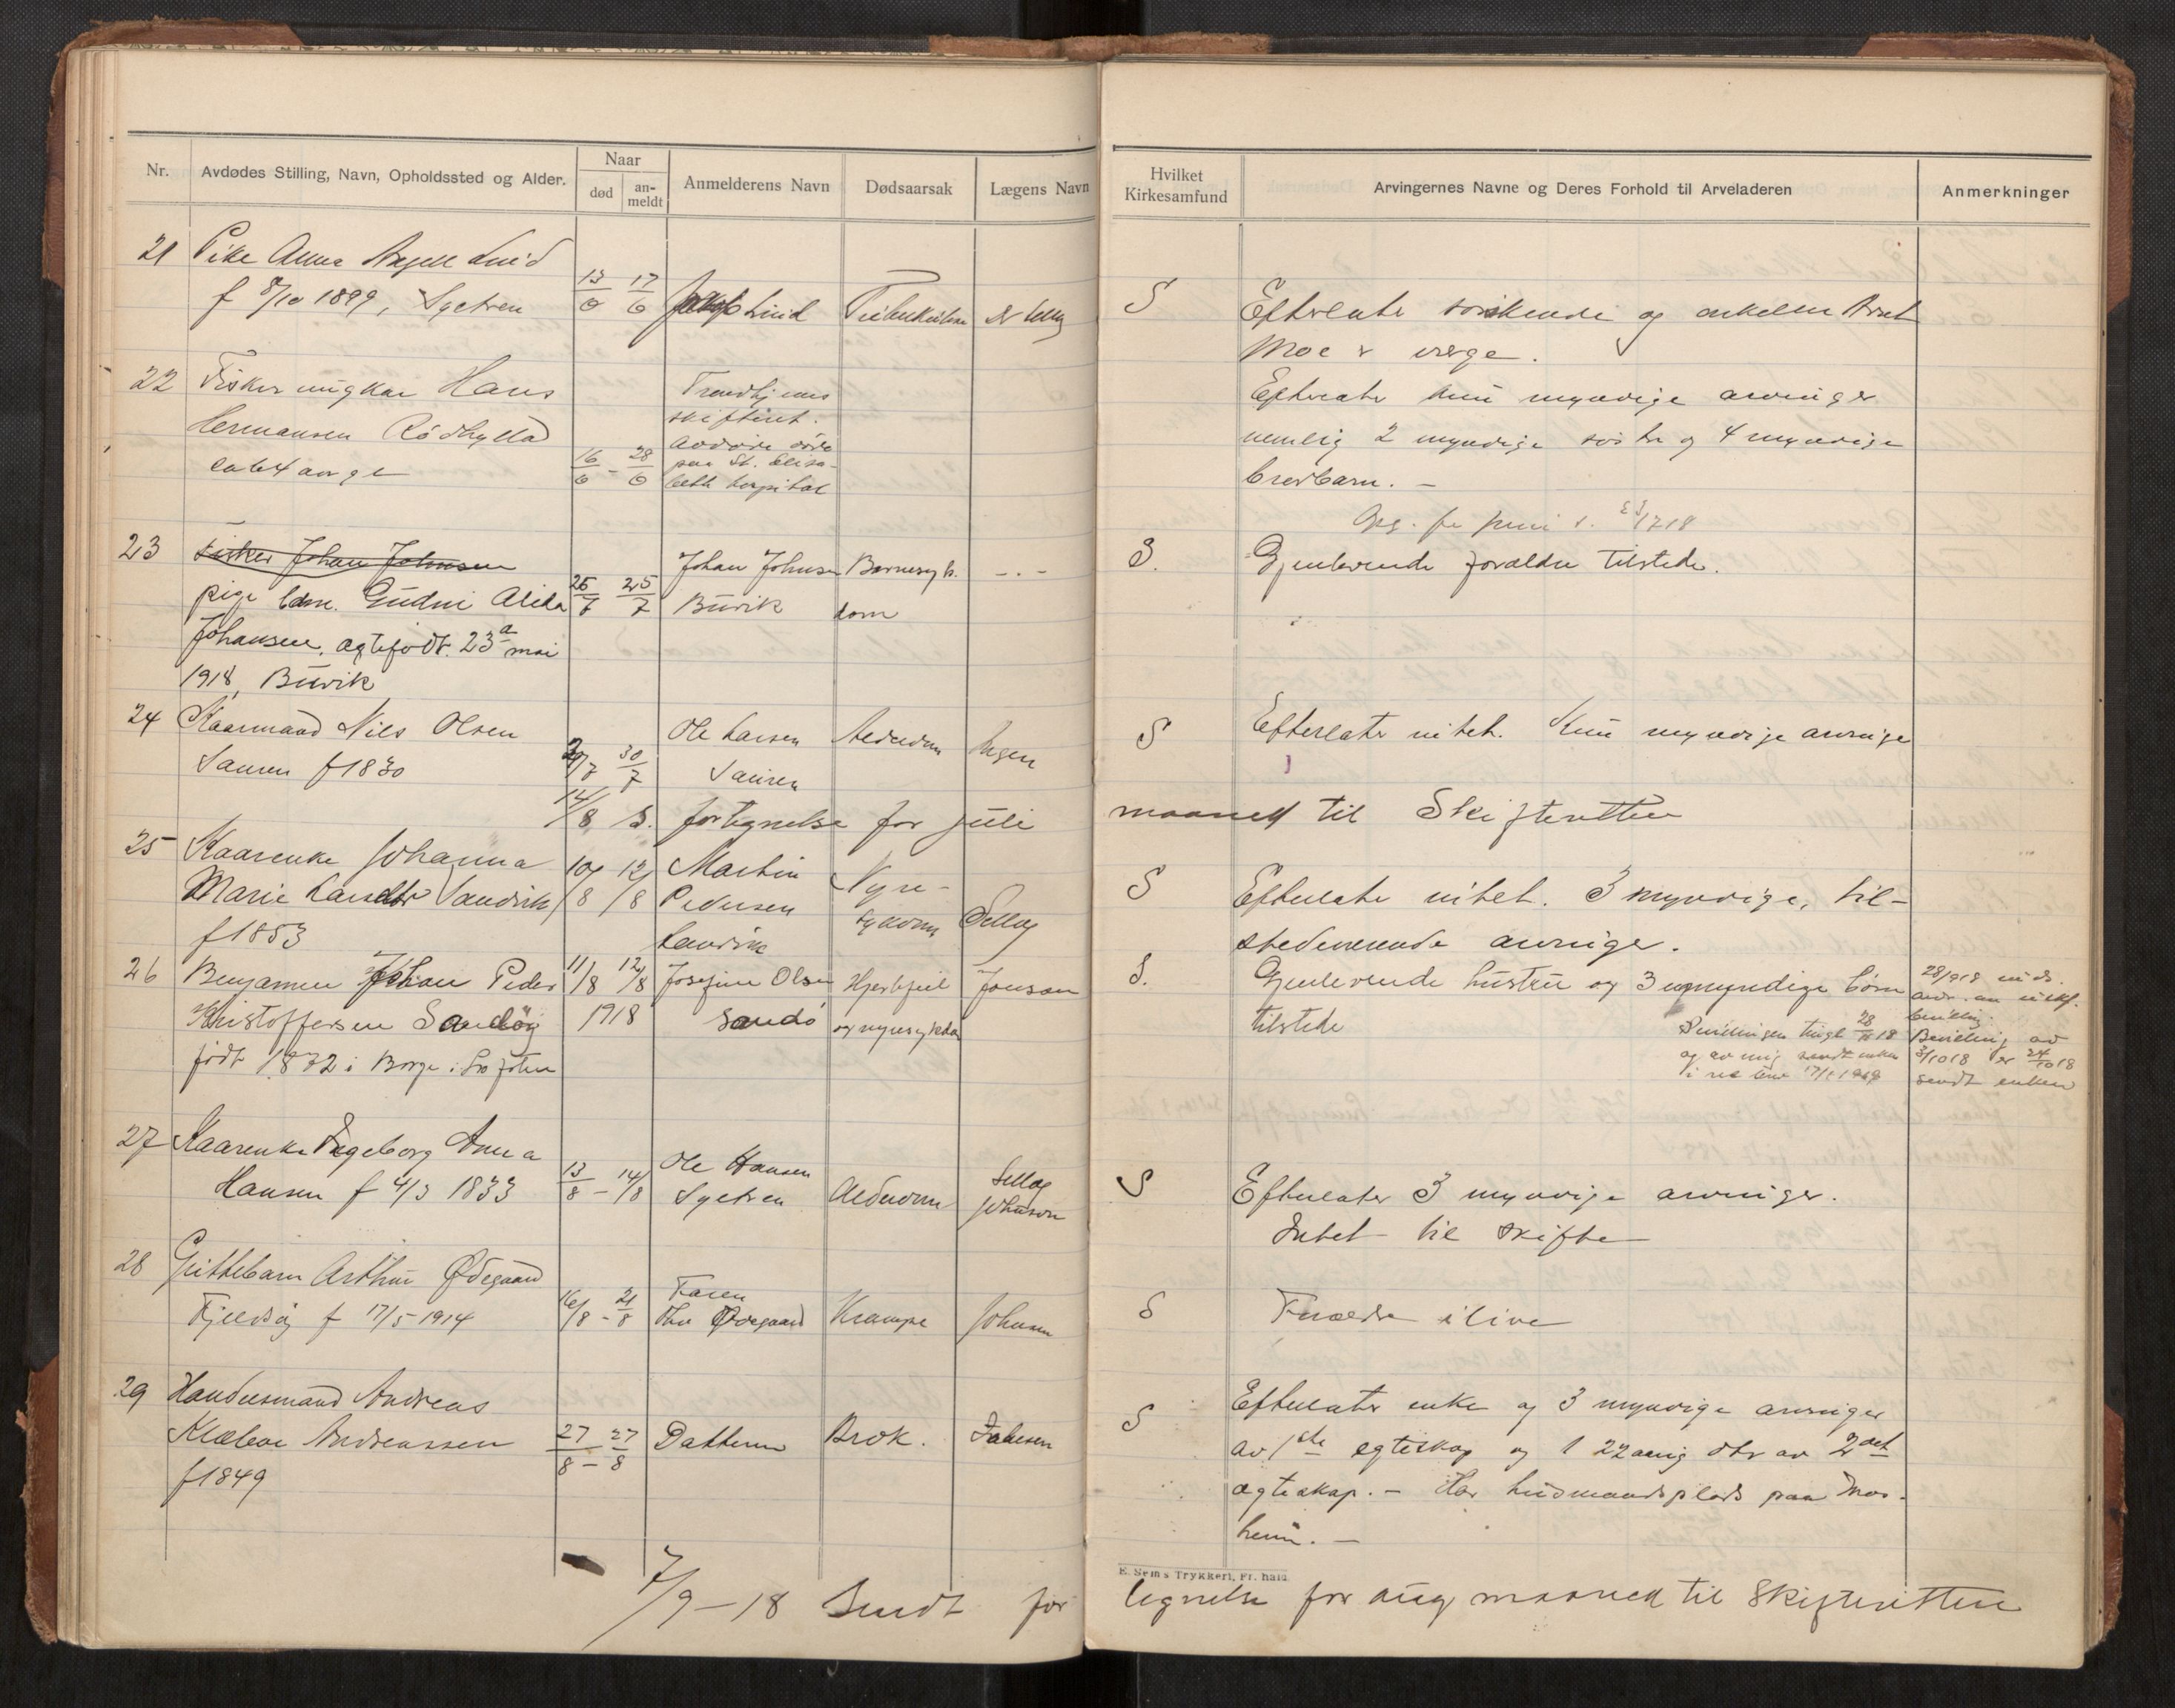 Nr.
Avdødes Stilling, Navn, Opholdssted og Alder.
Naar
død
an-
meldt
Anmelderens Navn
Dødsaarsak
Lægens Navn
Hvilket
Kirkesamfund
Arvingernes Navne og Deres Forhold til Arveladeren
Anmerkninger
21 Pike Anna
f 8/10 1899,
13/6 17/6
S
Efterlater søskende og onkelen
Moe v verge.
22 Fisker ungkar Hans
Hermansen
16/6 - 28/6
Trondhjems
skifteret.
Avdøde døde
paa St. Elisa-
beth hospital
Efterlater kun myndige arvinger
nemlig 2 myndige søstre og 4 myndige
brorbarn. -
23 Fisker Johan Johnsen
pige Gudni Alida
Johansen, ægtefødt 23 mai
1918, Buvik
25/7 25/7
Johan Johnsen
Buvik
Barnesyk-
dom
- . -
S.
Gjenlevende forældre tilstede.
24 Kaarmand Nils Olsen
f 1830
30/7
Ole Larsen
Alderdom
Ingen
S
Efterlater intet. Kun myndige arvinge
14/8 S. fortegnelse for juli
maaned til Skifteretten
25 Kaarenke Johanna
Marie Larsdtr Sandvik
f 1853
10/8 12/8
Martin
Pedersen
Sandvik
Nyre-
sykdom
Sellæg
S
Efterlater intet. 3 myndige, til-
stedeværende arvinge.
26 Benjamin Johan Peder
Kristoffersen
født 1872 i Borge i Lofoten
11/8 12/8
1918
Josefine Olsen
Hjertefeil
og nyresykdom
Jonson
S.
Gjenlevende hustru og 3 umyndige børn
tilstede
Bevilling av
3/10 18 er 24/10 18
sendt enken
27 Kaarenke Ingeborg Anna
Hansen f 4/3 1833
13/8 - 14/8
Ole Hansen
Alderdom
Sellæg
Johnson
S
Efterlater 3 myndige arvinger.
Intet til skifte
28 Guttebarn Arthur Ødegaard
f 17/5 1914
16/8 - 21/8
Faren
Ødegaard
Krampe
S
Forældre ilive
29 Handelsmand Andreas
Andreassen
f 1849
27/8 - 27/8
Datteren
Brok.
S
Efterlater enke og 3 myndige arvinger
av 1ste egteskap og 1 22 aarig dtr av 2det
egteskap. - Har husmandsplads paa Mos-
heim. -
E. Sem's Trykkeri, Fr. hald.
7/9 - 18 Sendt for
tegnelse for aug maaned til Skifteretten